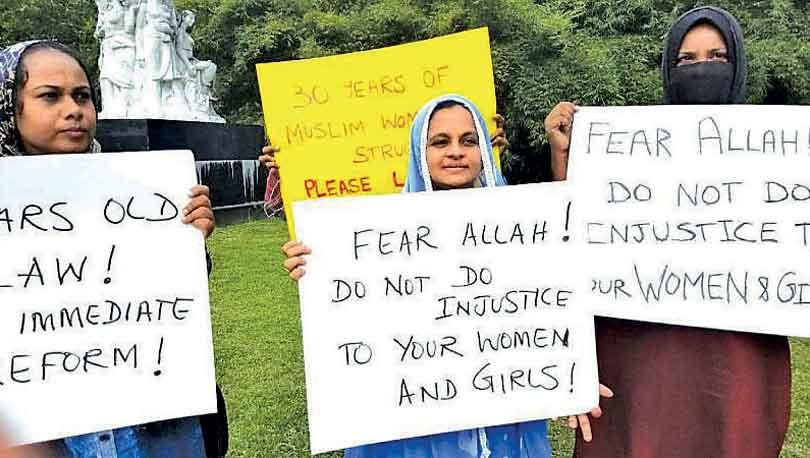 ARS OLD
LAW!
IMMEDIATE
REFORM!
30 YEARS OF
MUSLIM WOM
STRU
PLEASE L
FEAR ALLAH!
DO NOT DO
INJUSTICE
TO YOUR WOMEN
AND GIRLS!
FEAR ALLAH!
DO NOT DO
INJUSTICE T
OUR WOMEN & GI